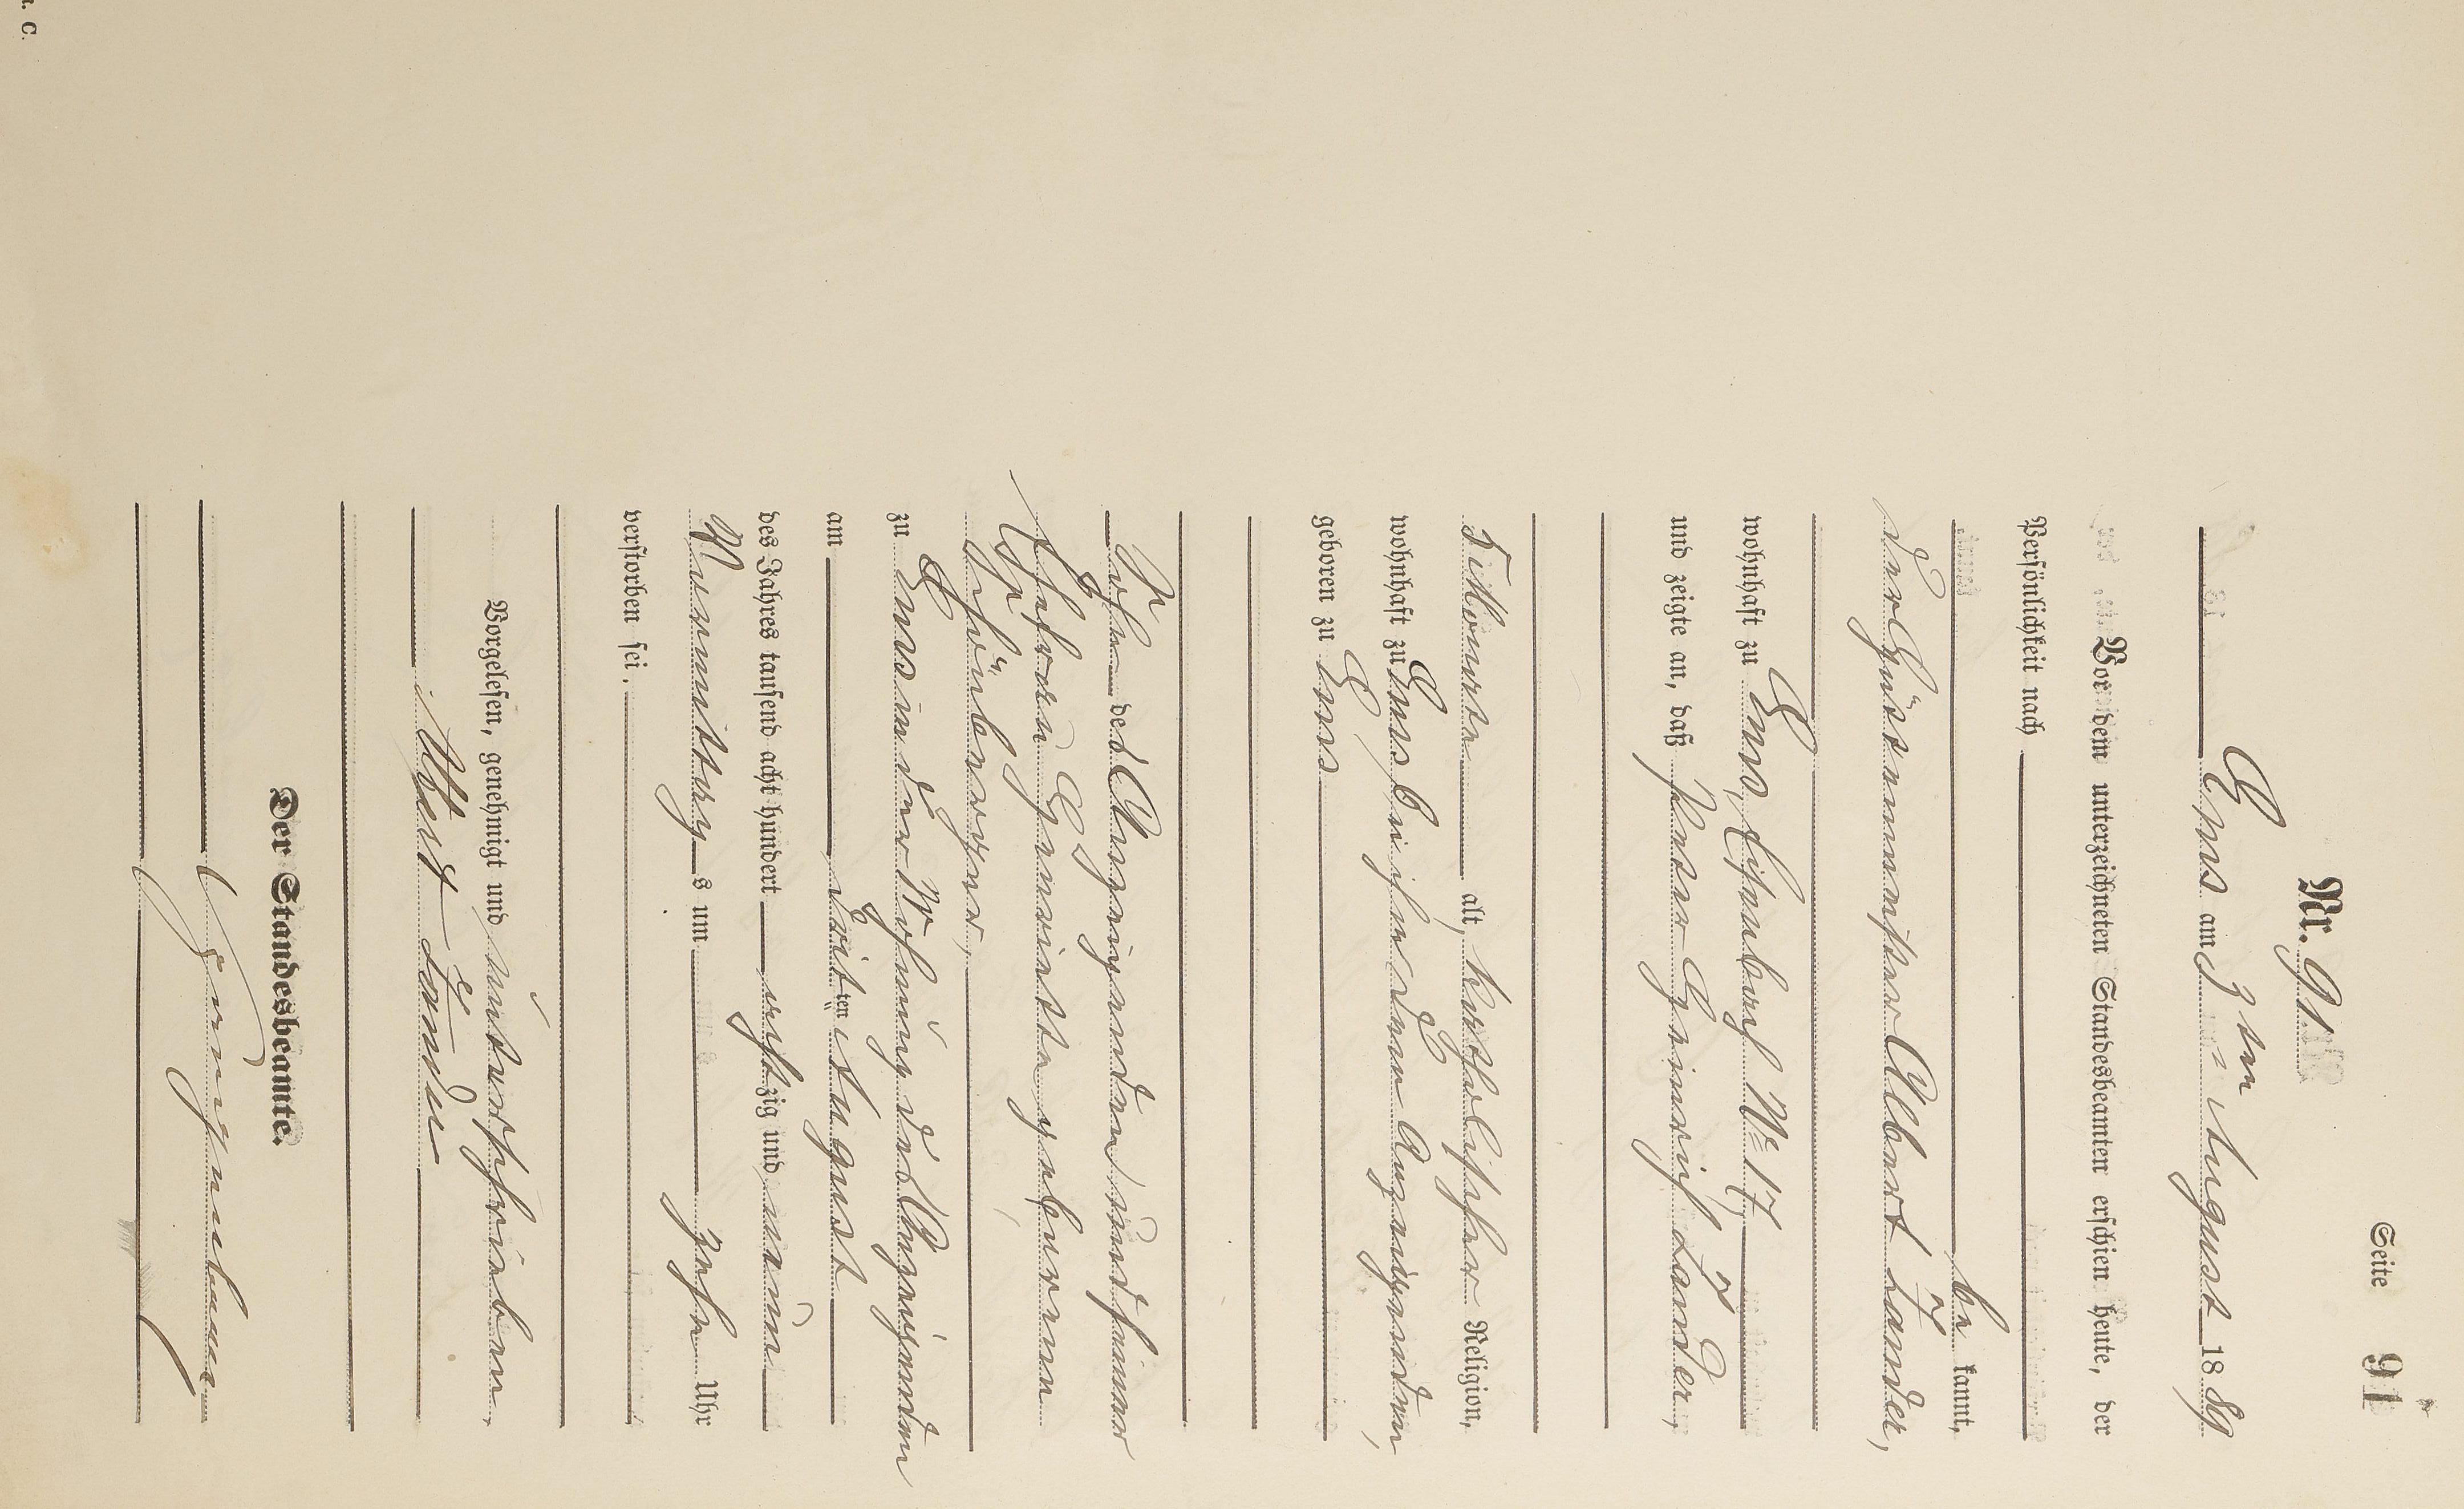 Seite 91
Nr. 91
Ems am 3ten August 1889
Vor dem unterzeichneten Standesbeamten erschien heute, der
Persönlichkeit nach
be kannt,
der Gütermeister Albert Zander,
wohnhaft zu Ems, Eisenbach No 17
und zeigte an, daß Peter Heinrich Zander,
5 Monate alt, katholischer Religion,
wohnhaft zu Ems, bei ihm dem Anzeigenden,
geboren zu Ems
Sohn des Anzeigenden und seiner
Ehefrau Henriette geborenen
Schönberger,
zu Ems in der Wohnung des Anzeigenden
am dritten August
des Jahres tausend acht hundert achtzig und neun
Vormittags um zehn Uhr
verstorben sei.
Vorgelesen, genehmigt und unterschrieben
Albert Zander
Der Standesbeamte.